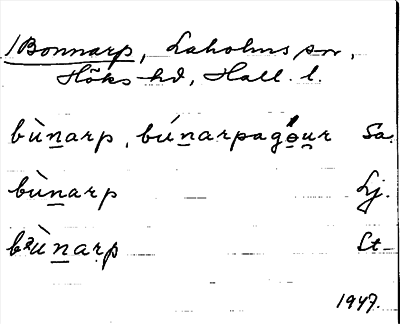 /Bonnarp, Laholms sn,
Höks hd, Hall. l.
bùn̲arp, bún̲arpagó̲u̲r Sa.
bùn̲arp Lj.
bᵊùn̲arp St
1947.